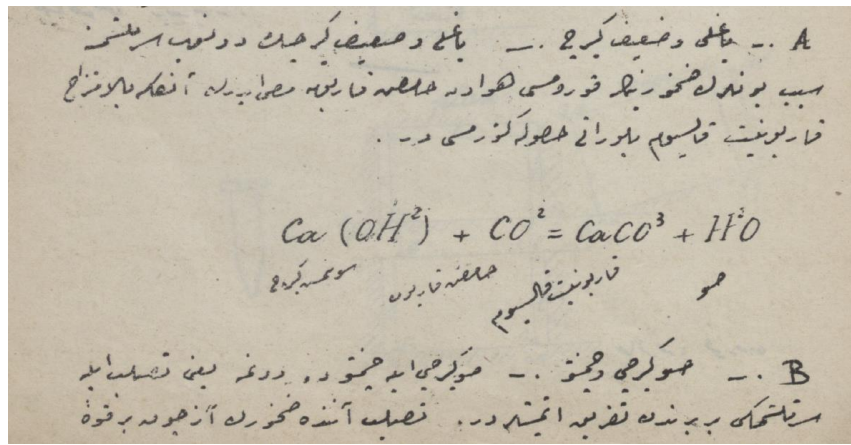 A ._ ياغلی و ضعيف كيرج ._ ياغلی و ضعيف كيرجك دونوب سرتلشمه
سبب بونلرك قورومسی هوادن حامض قاربون آنكله بالامتزاج
قاربونيت قالسيوم بلوراتی حصوله كتورمسی در .
Ca (OH²) + CO² = CaCO³ + H²O
سونمش كيرج حامض قاربون قاربونيت قالسيوم صو
B ._ صو كيرجی و چمنتو ._ صو كيرجی ايله چمنتوده دونمه يعنی تصلب ايله
سرتلشمكی بربرندن تفريق ايتمشلر در . تصلب آننده آز چوق بر قوه